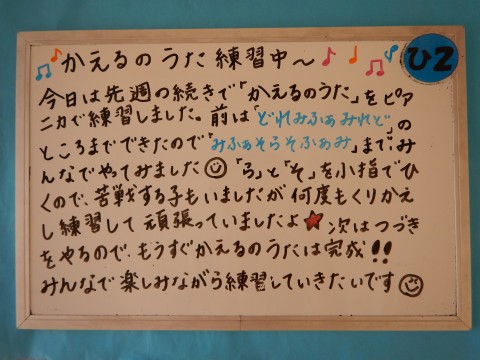 かえるのうた練習中～
ひ2
今日は先週の続きで「かえるのうた」をピア
ニカで練習しました。前は「どれみふぁみれど」の
ところまでできたので「みふぁそらそふぁみ」まで、み
んなでやってみました
「ら」と「そ」を小指でひ
くので、苦戦する子もいましたが何度もくりかえ
し練習して頑張っていましたよ★次はつづき
をやるので、もうすぐかえるのうたは完成!!
みんなで楽しみながら練習していきたいです